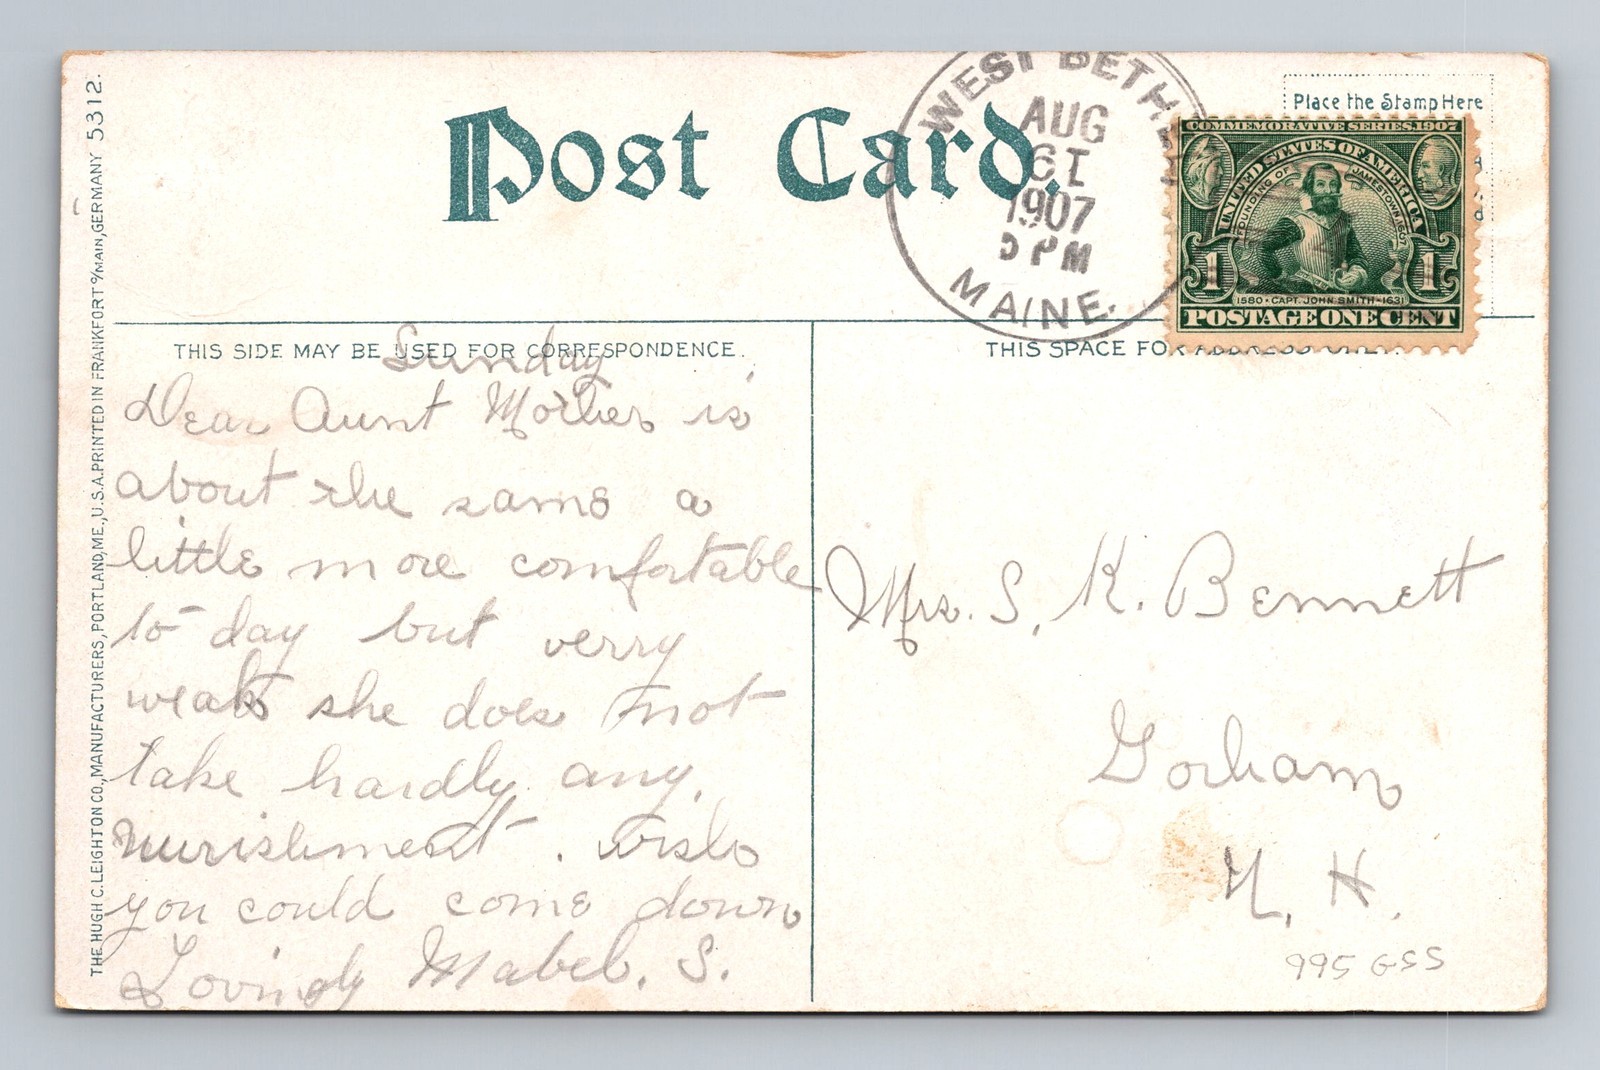 THE HUGH C. LEIGHTON CO., MANUFACTURERS, PORTLAND, ME., U.S.A. PRINTED IN FRANKFORT o/MAIN, GERMANY 5312.
Post Card.
WEST BETHEL
AUG
61
1907
PM
MAINE.
Place the Stamp Here
COMMEMORATIVE SERIES, 1907
UNITED STATES OF AMERICA
FOUNDING OF JAMESTOWN 1607
1 1
1580 • CAPT. JOHN SMITH - 1631
POSTAGE ONE CENT
THIS SIDE MAY BE USED FOR CORRESPONDENCE.
THIS SPACE FOR ADDRESS ONLY.
Sunday
Dear Aunt Mother is
about the same a
little more comfortable
to day but verry
weak she does not
take hardly any.
nurishment. wish
you could come down
Lovingly Mabel. S.
Mrs. S. K. Bennett
Gorham
N. H.
995 GSS